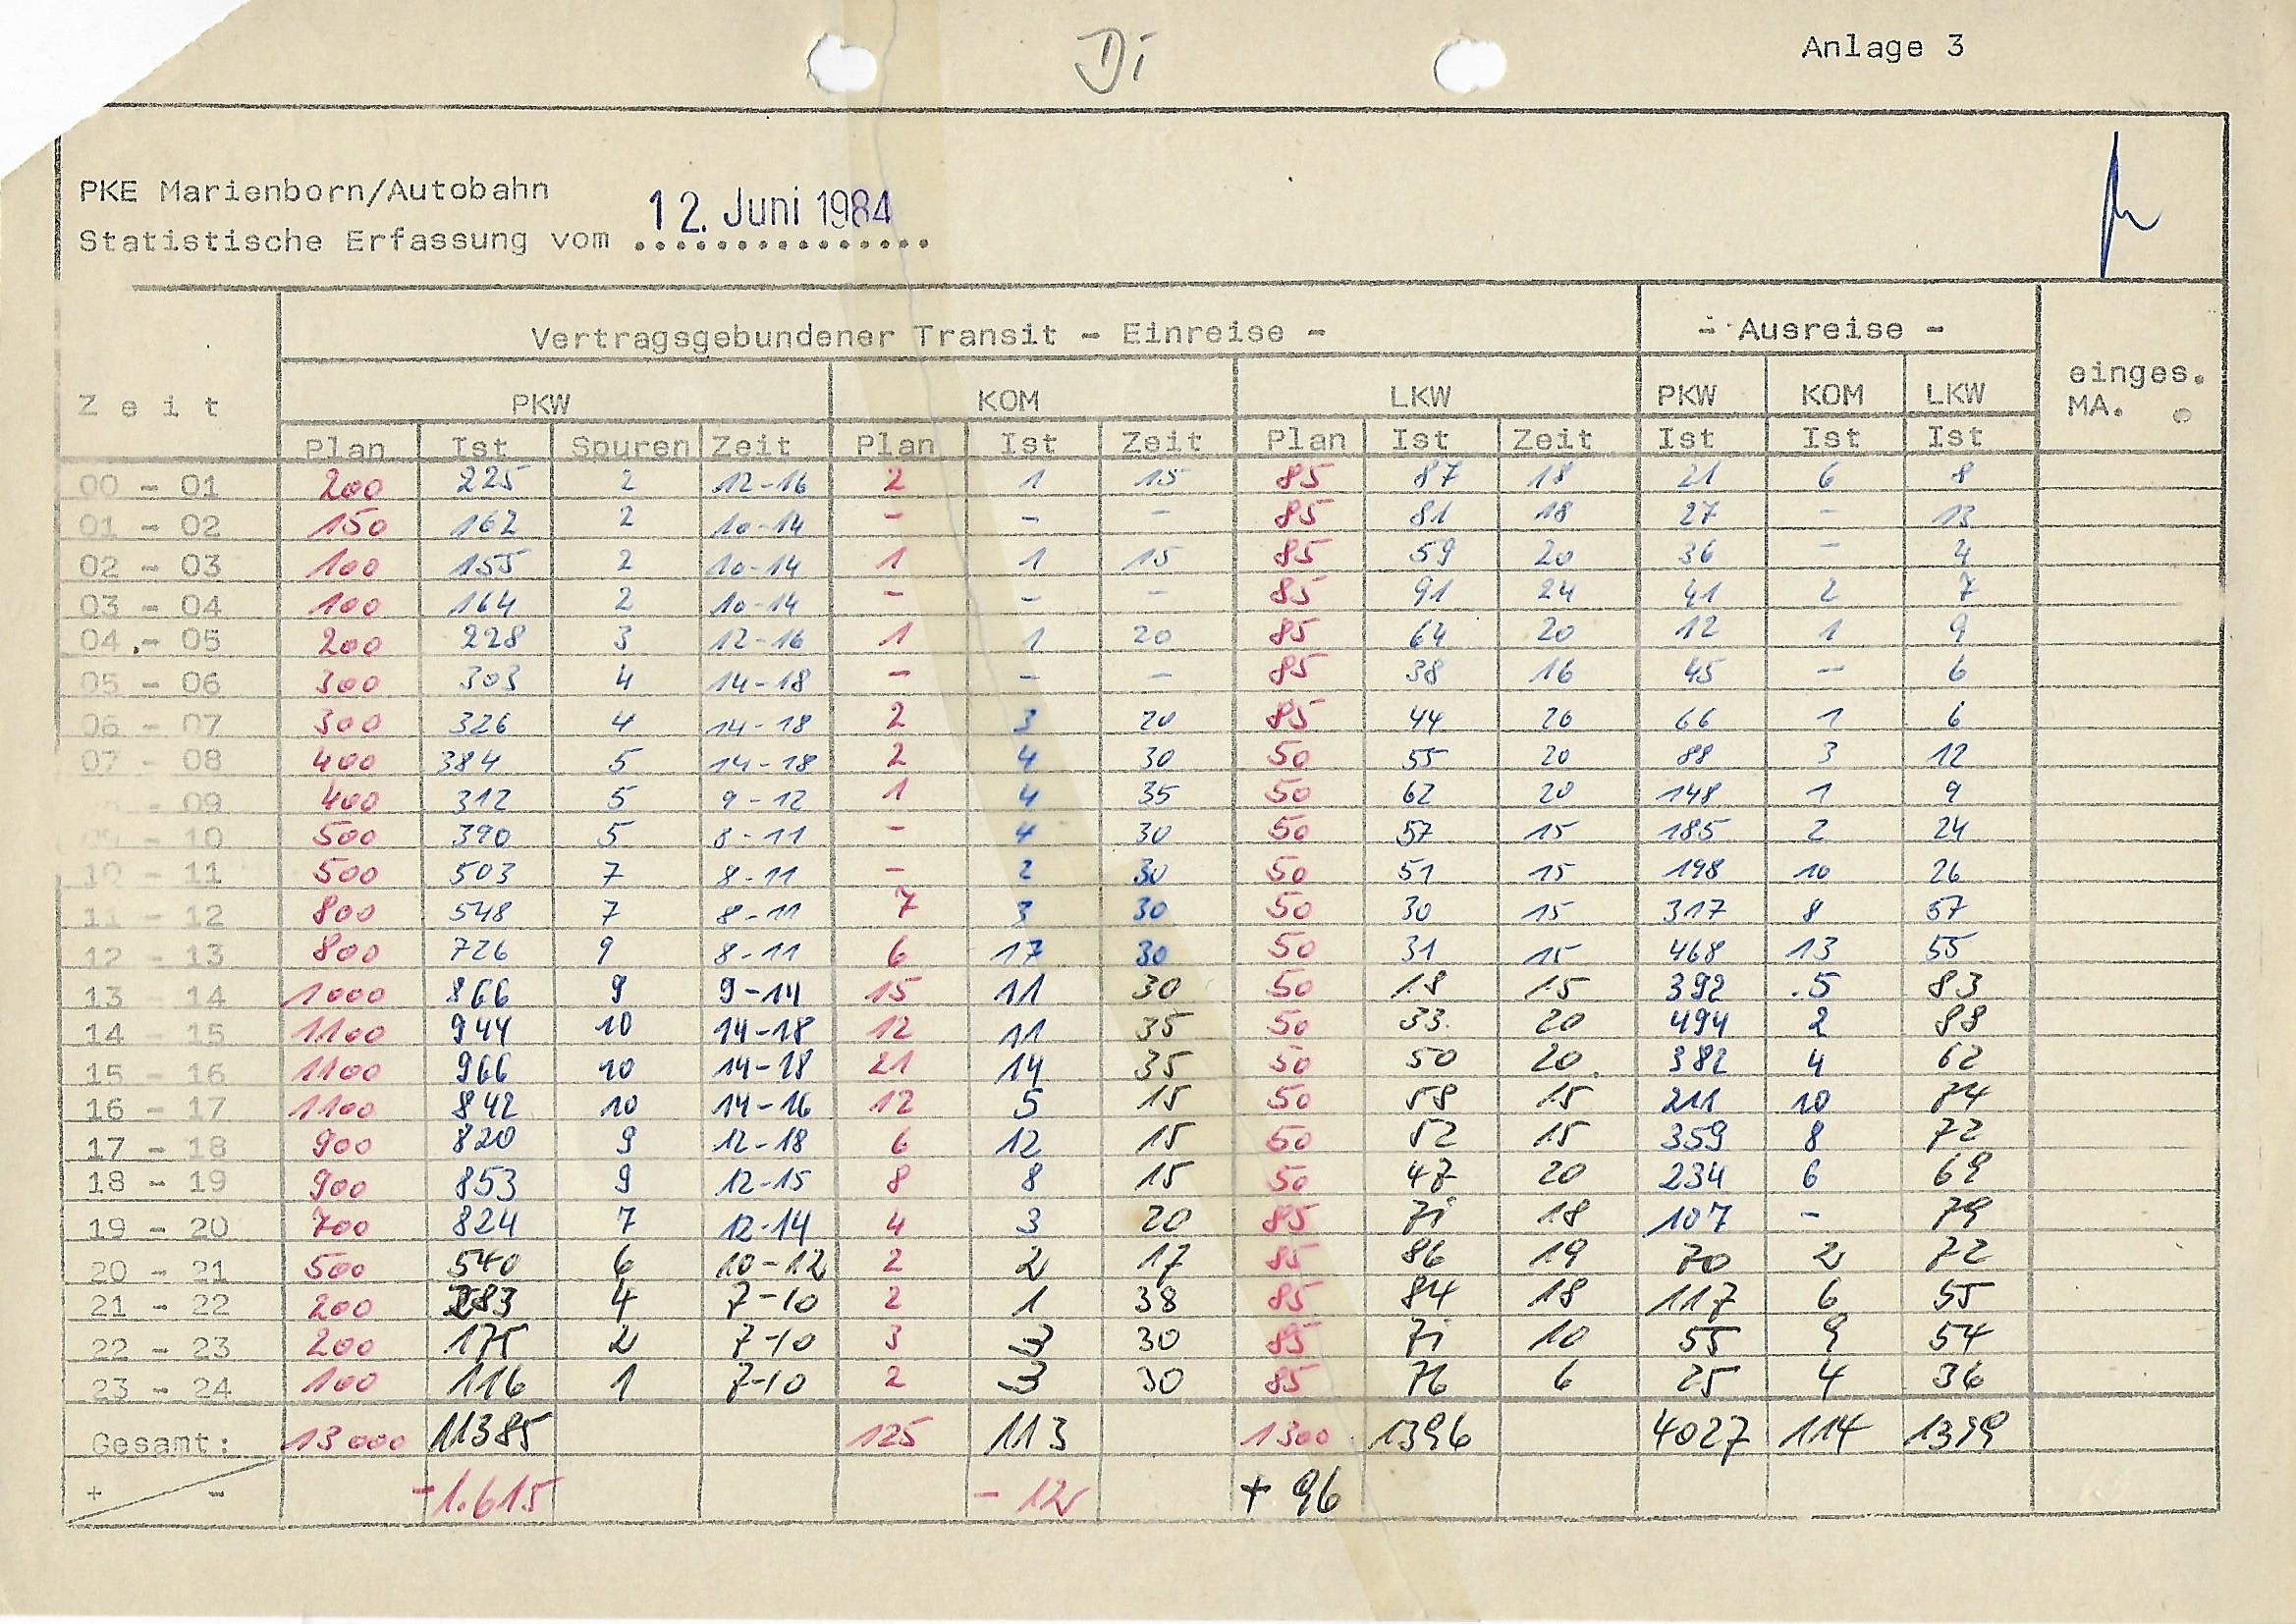 Di
Anlage 3
PKE Marienborn/Autobahn
12. Juni 1984
Statistische Erfassung vom ................
Vertragsgebundener Transit - Einreise - - Ausreise -
Zeit PKW KOM LKW PKW KOM LKW einges. MA.
Plan Ist Spuren Zeit Plan Ist Zeit Plan Ist Zeit Ist Ist Ist
00 - 01 200 225 2 12-16 2 1 15 85 87 18 21 6 8
01 - 02 150 162 2 10-14 - - - 85 81 18 27 - 13
02 - 03 100 155 2 10-14 1 1 15 85 59 20 36 - 4
03 - 04 100 164 2 10-14 - - - 85 91 24 41 2 7
04 - 05 200 228 3 12-16 1 1 20 85 64 20 12 1 9
05 - 06 300 303 4 14-18 - - - 85 38 16 45 - 6
06 - 07 300 326 4 14-18 2 3 20 85 44 20 66 1 6
07 - 08 400 384 5 14-18 2 4 30 50 55 20 88 3 12
- 09 400 312 5 9-12 1 4 35 50 62 20 148 1 9
09 - 10 500 390 5 8-11 - 4 30 50 57 15 185 2 24
10 - 11 500 503 7 8-11 - 2 30 50 51 15 198 10 26
11 - 12 800 548 7 8-11 7 3 30 50 30 15 317 8 57
12 - 13 800 726 9 8-11 6 17 30 50 31 15 468 13 55
13 - 14 1000 866 9 9-14 15 11 30 50 18 15 392 5 83
14 - 15 1100 944 10 14-18 12 11 35 50 33 20 494 2 88
15 - 16 1100 966 10 14-18 21 14 35 50 50 20 382 4 62
16 - 17 1100 842 10 14-16 12 5 15 50 58 15 211 10 84
17 - 18 900 820 9 12-18 6 12 15 50 52 15 359 8 72
18 - 19 900 853 9 12-15 8 8 15 50 47 20 234 6 69
19 - 20 700 824 7 12-14 4 3 20 85 71 18 107 - 79
20 - 21 500 540 6 10-12 2 2 17 85 86 19 70 2 72
21 - 22 200 283 4 7-10 2 1 38 85 84 18 117 6 55
22 - 23 200 175 2 7-10 3 3 30 85 71 10 55 9 54
23 - 24 100 116 1 7-10 2 3 30 85 76 6 25 4 36
Gesamt: 13000 11385 125 113 1300 1396 4027 114 1399
+ - -1.615 - 12 + 96